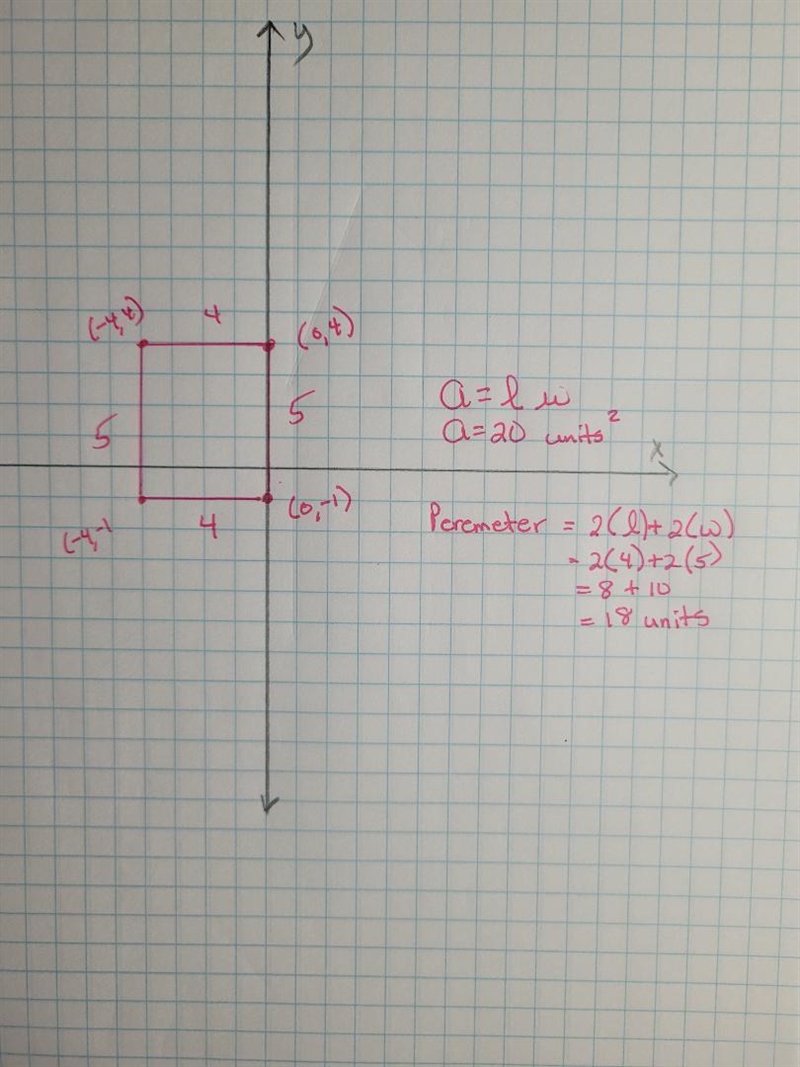 y
(-4,4)
4
(0,4)
5
5
a = l w
a = 20 units²
x
(-4,-1
4
(0,-1)
Peremeter = 2(l)+2(w)
= 2(4)+2(5)
= 8 + 10
= 18 units